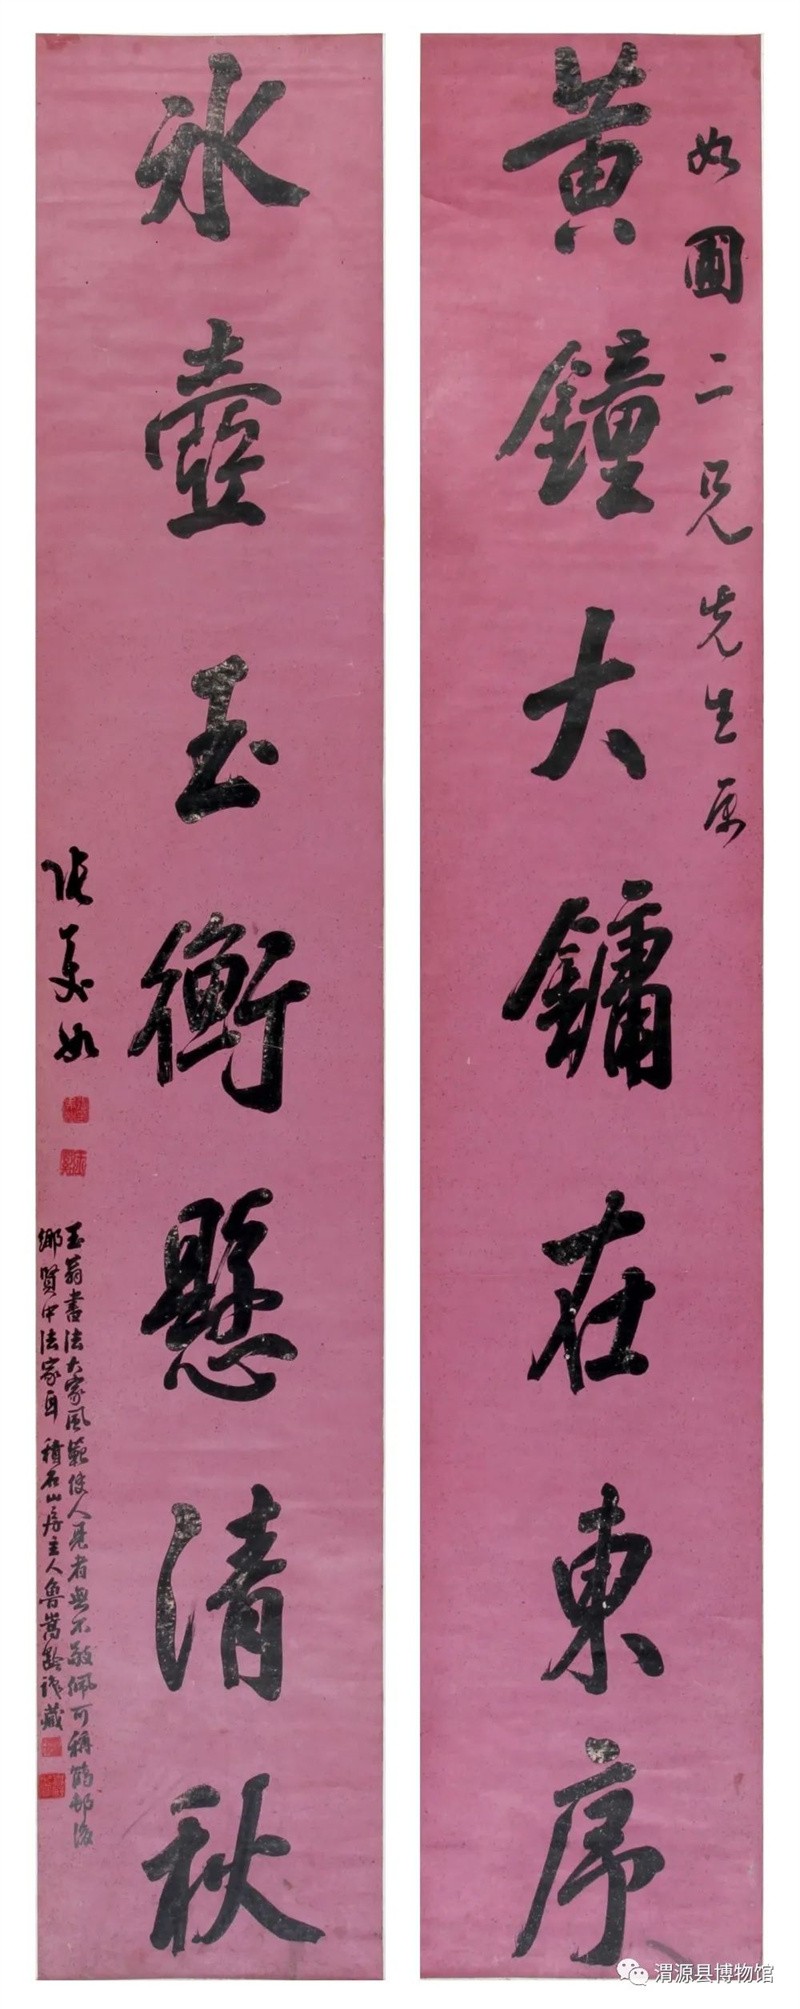 如圃二兄先生属
黄鐘大鏞在東序
冰壺玉衡懸清秋
张美如
玉翁書法大家風範使人見者無不敬佩可稱
鄉賢中法家耳 積石山房主人魯嵩齡識藏
渭源县博物馆